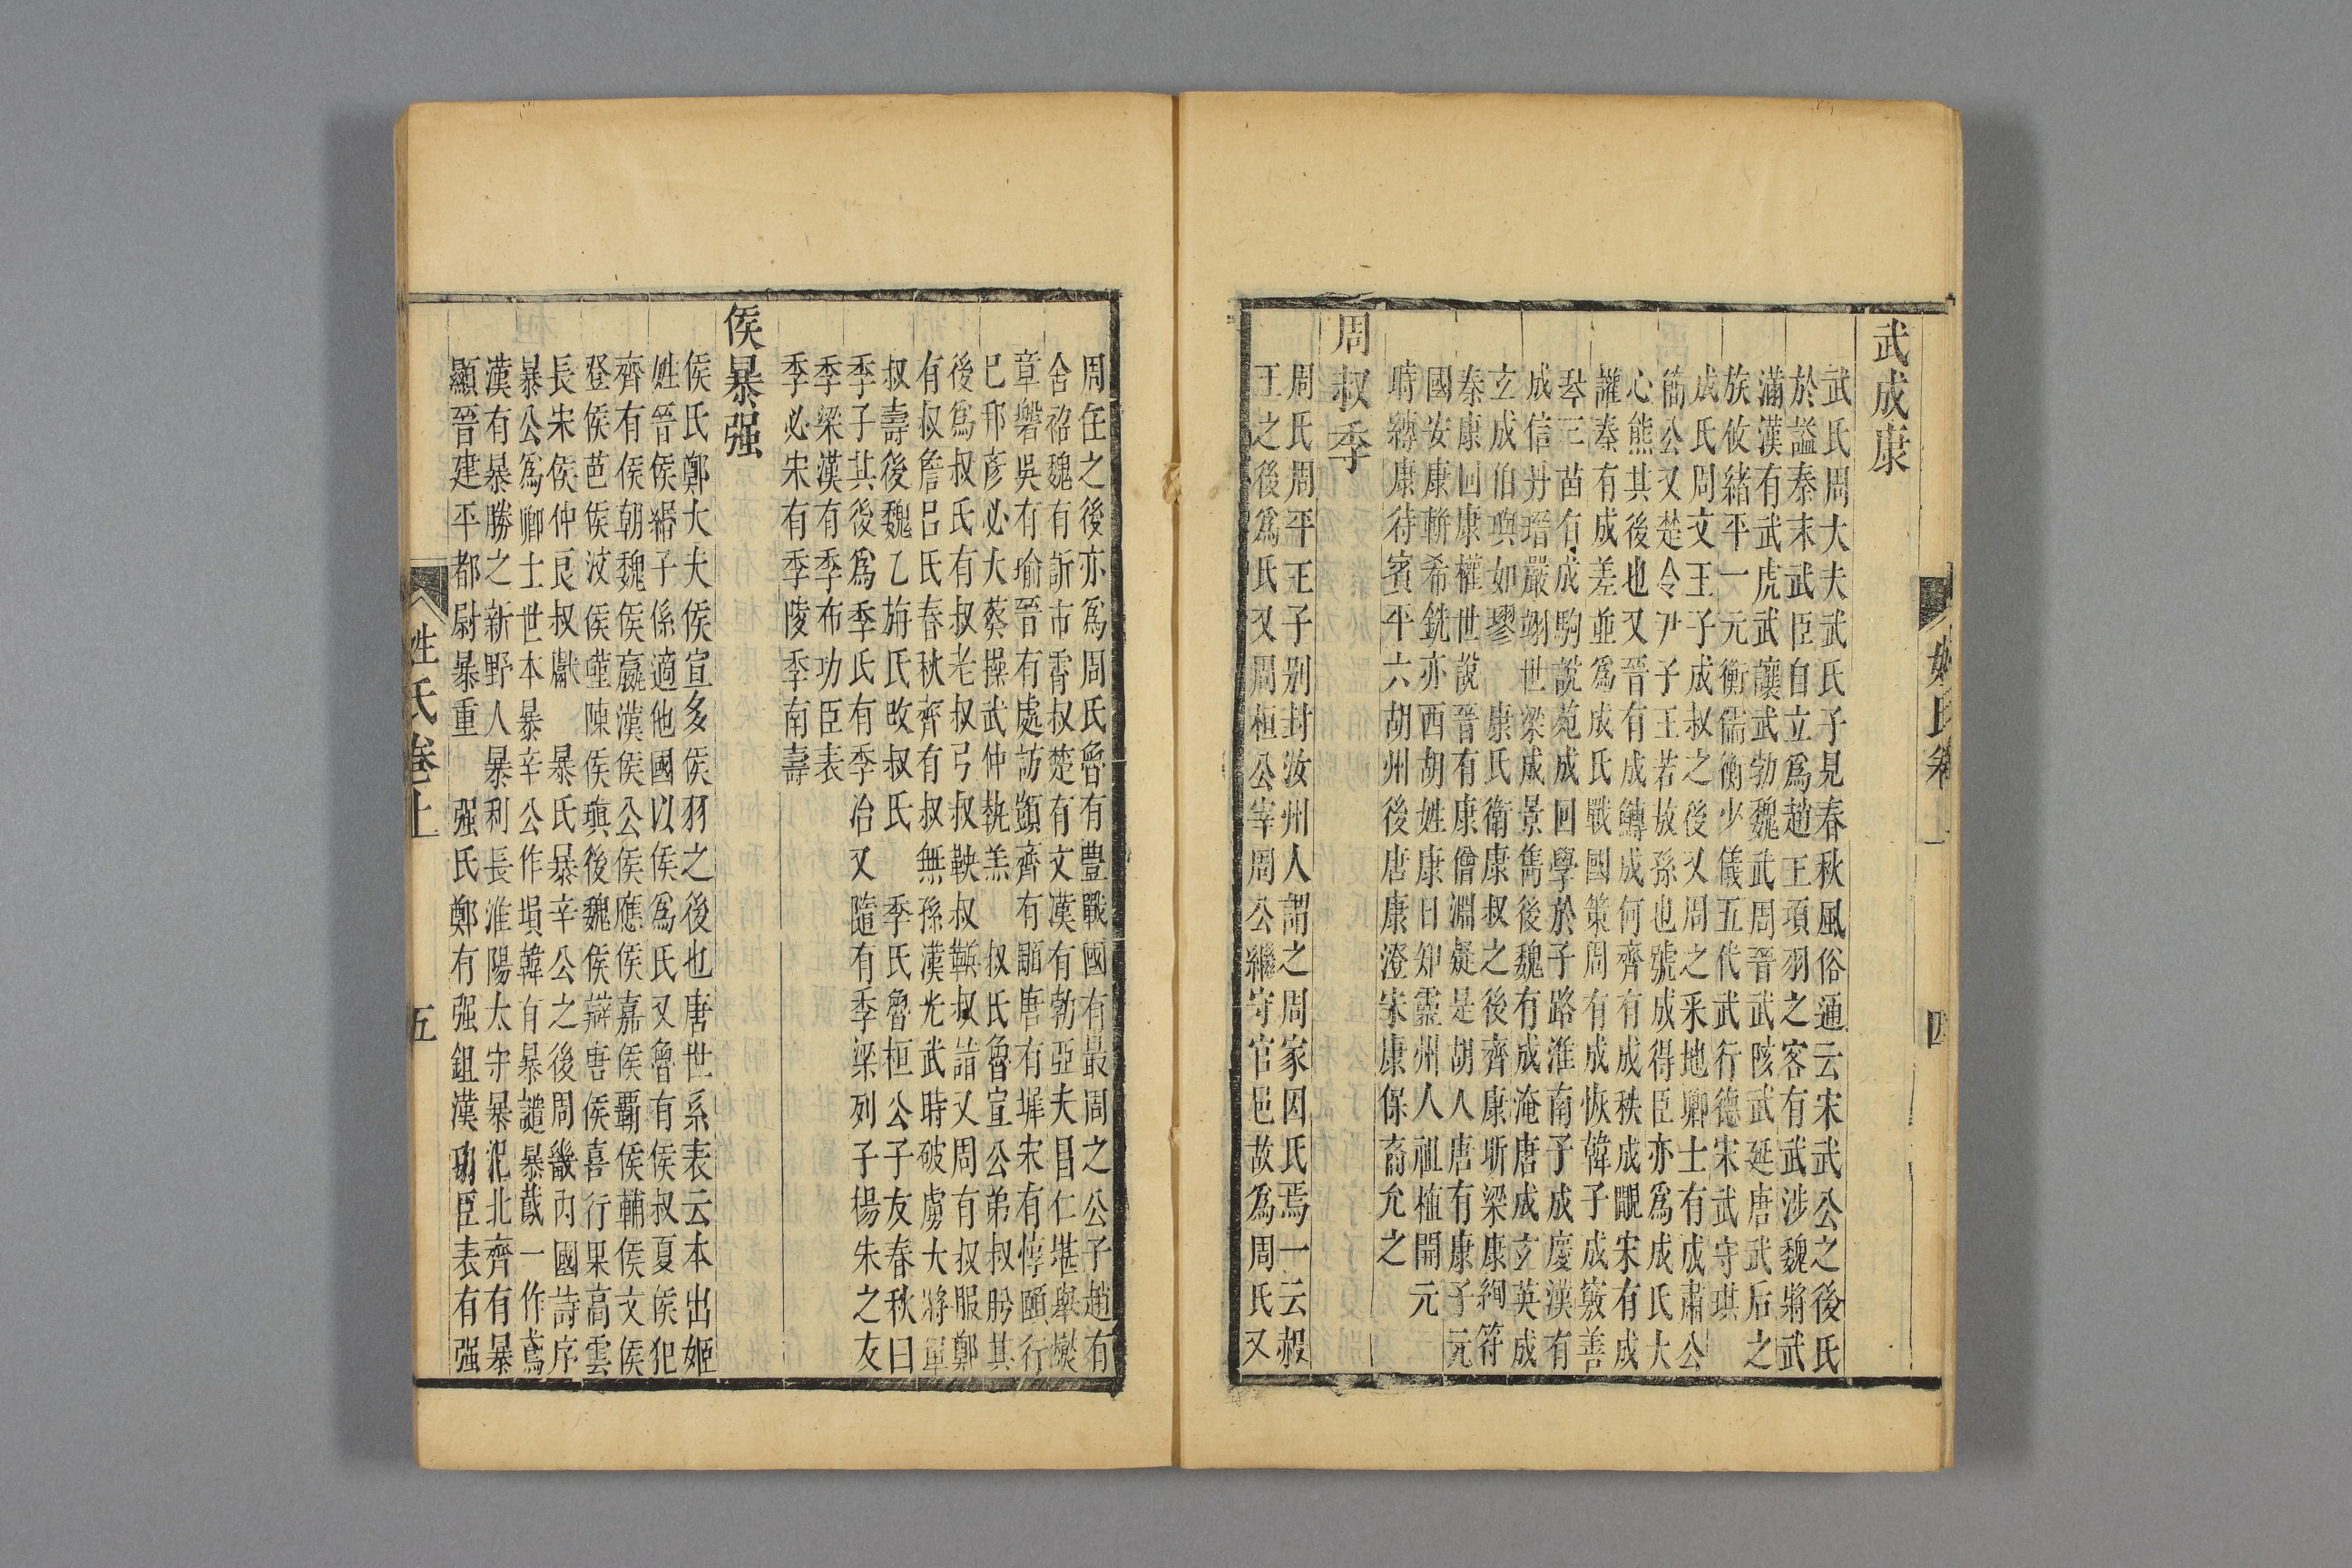 武成康
武氏周大夫武氏子見春秋風俗通云宋武公之後氏
於謚秦末武臣自立爲趙王項羽之客有武涉魏將武
滿漢有武虎武讓武勃魏武周晉武陔武延唐武后之
族攸緒平一元衡儒衡少儀五代武行德宋武守琪
成氏周文王子成叔之後又周之采地卿士有成肅公
簡公又楚令尹子王若敖孫也號成得臣亦爲成氏大
心熊其後也又晉有成鱄成何齊有成秩成覸宋有成
讙秦有成差並爲成氏戰國策周有成恢韓子成竅善
琴三苗有成駒說苑成回學於子路淮南子成慶漢有
成信丹瑨嚴翊世梁成景雋後魏有成淹唐成玄英成
玄成伯璵如璆 康氏衛康叔之後齊康斯梁康絢符
秦康回康權世說晉有康僧淵疑是胡人唐有康子元
國安康輧希銑亦西胡姓康日知靈州人祖植開元
時縛康待賓平六胡州後唐康澄宋康保裔允之
周叔季
周氏周平王子別封汝州人謂之周家因氏焉一云赧
王之後爲氏又周桓公宰周公繼守官邑故爲周氏又
周任之後亦爲周氏魯有豐戰國有最周之公子趙有
舍䂮魏有訢市霄叔楚有文漢有勃亞夫昌仁堪輿爕
章礐吳有瑜晉有處訪顗齊有顒唐有墀宋有惇頤行
巳邦彥必大蔡操武仲執羔 叔氏魯宣公弟叔肸其
後爲叔氏有叔老叔弓叔鞅叔鞮叔詣又周有叔服鄭
有叔詹呂氏春秋齊有叔無孫漢光武時破虜大將軍
叔壽後魏乙旃氏攺叔氏 季氏魯桓公子友春秋曰
季子其後爲季氏有季冶又隨有季梁列子楊朱之友
季梁漢有季布功臣表
季必宋有季陵季南壽
侯暴强
侯氏鄭大夫侯宣多侯羽之後也唐世系表云本出姬
姓晉侯緡子係適他國以侯爲氏又魯有侯叔夏侯犯
齊有侯朝魏侯嬴漢侯公侯應侯嘉侯霸侯輔侯文侯
登侯芭侯波侯堇陳侯瑱後魏侯辯唐侯喜行果高雲
長宋侯仲良叔獻 暴氏暴辛公之後周畿內國詩序
暴公爲卿士世本暴辛公作塤韓有暴譴暴蔵一作鳶
漢有暴勝之新野人暴利長淮陽太守暴氾北齊有暴
顯晉建平都尉暴重 强氏鄭有强鉏漢功臣表有强
姓氏卷上 四
姓氏卷上 五